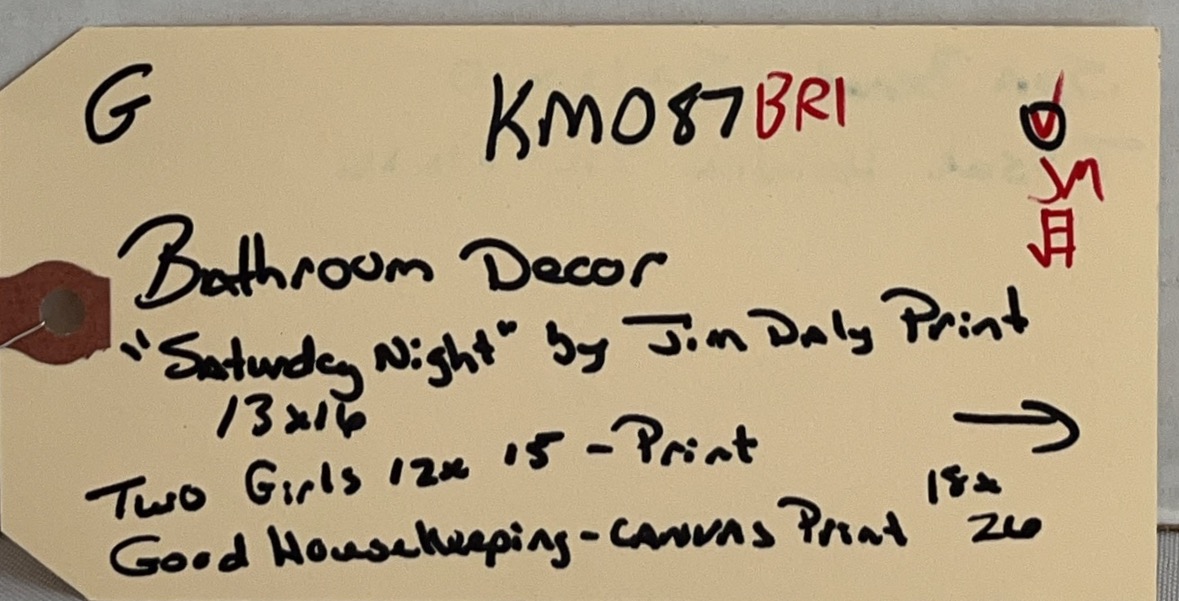 G KM087BRI
Bathroom Decor
"Saturday Night" by Jim Daly Print
13x16
Two Girls 12x 15 - Print
Good Housekeeping - Canvas Print 18x
26